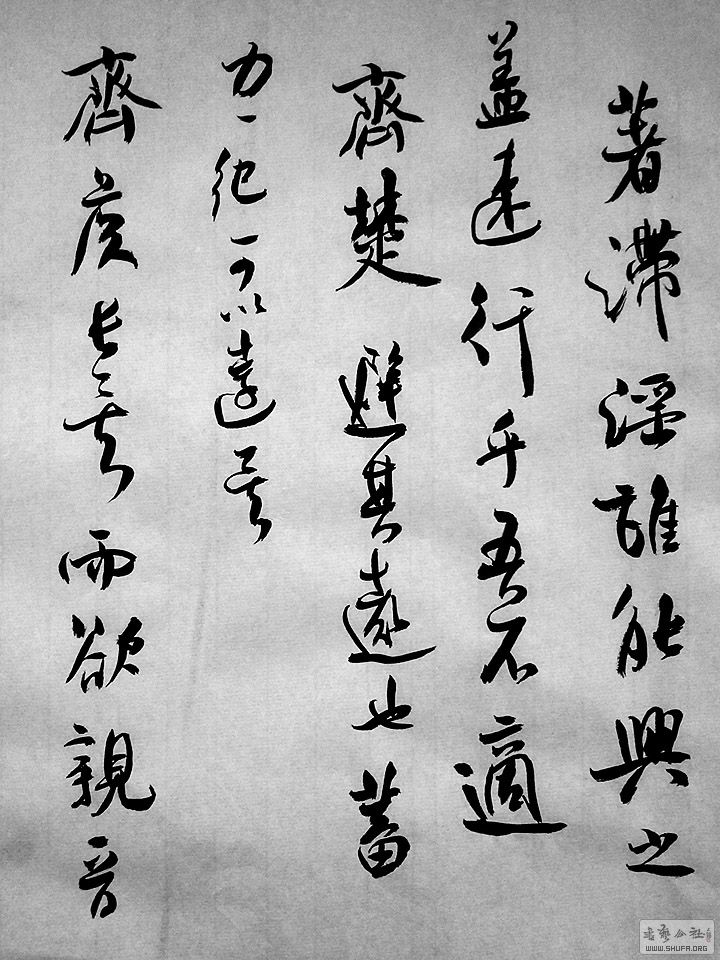 著滯淫誰能興之
盖速行乎吾不適
齊楚避其遠也蓄
力一紀可以遠矣
齊侯長矣而欲親晉
書藝公社
WWW.SHUFA.ORG